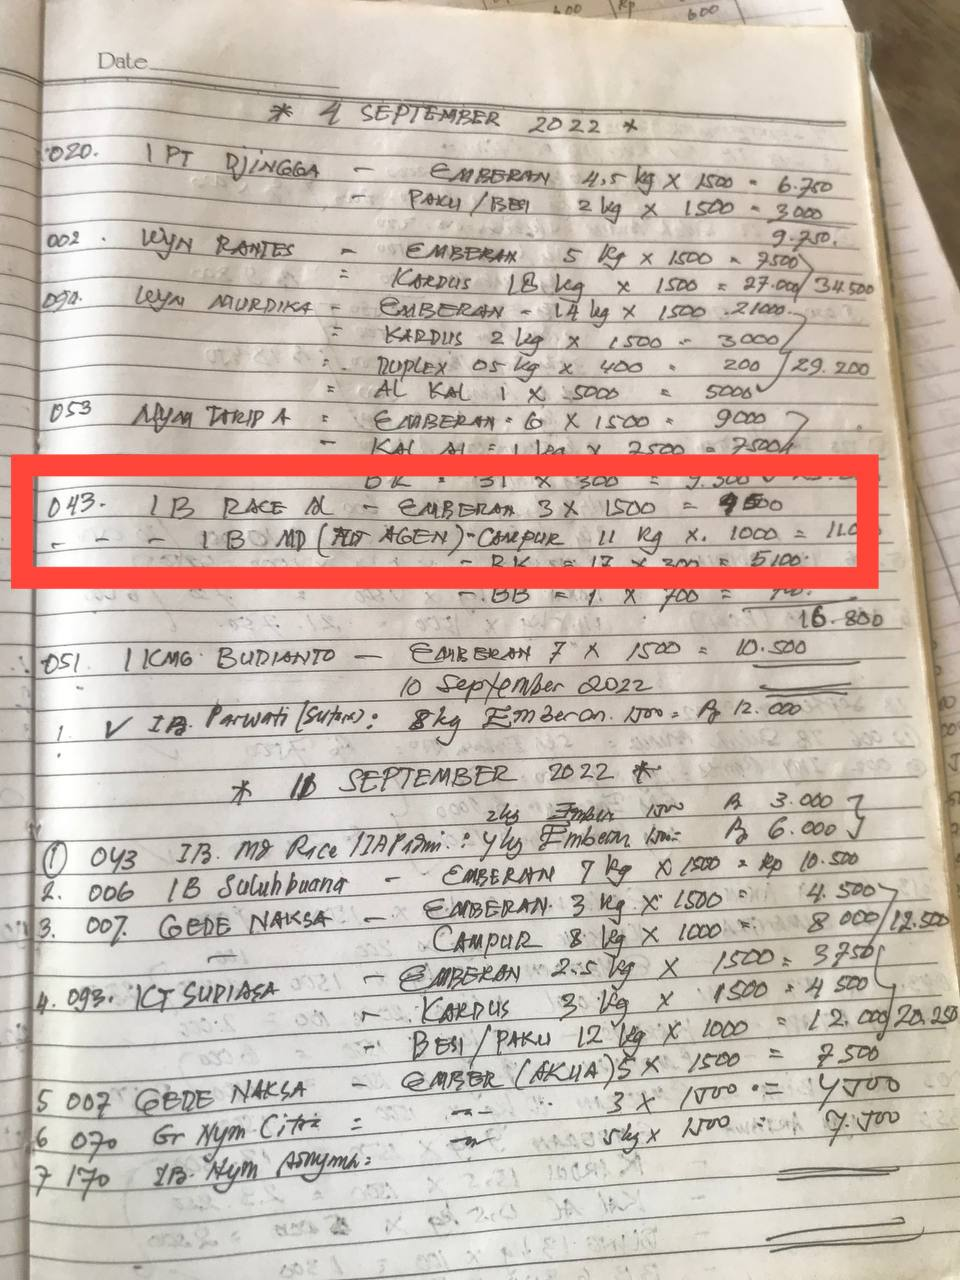 600 Rp 600
Date
* 4 SEPTEMBER 2022 *
020. I PT DJINGGA - EMBERAN 4,5 kg X 1500 = 6.750
- PAKU/BESI 2 kg X 1500 = 3000
9.750.
002. WYN RANTES - EMBERAN 5 kg X 1500 = 7500
= KARDUS 18 kg X 1500 = 27.000 34.500
090. WYN MURDIKA = EMBERAN - 14 kg X 1500 = 21000
= KARDUS 2 kg X 1500 = 3000
= DUPLEX 05 kg X 400 = 200 29.200
= AL KAL 1 X 5000 = 5000
053 NYM TARIP A = EMBERAN = 6 X 1500 = 9000
- KAL AL = 1 kg X 7500 = 7500
BK = 31 X 300 = 9.300
043. I B RACE - EMBERAN 3 X 1500 = 4500
- - - I B MD ( AGEN) - CAMPUR 11 kg X. 1000 = 11.0
- BK = 17 X 300 = 5100
- BB = 1 X 700 =
16.800
051 I KMG BUDIANTO - EMBERAN 7 X 1500 = 10.500
10 September 2022
1. ✓ I.B. Parwati (Sutara): 8 kg Emberan. 1500 = Rp 12.000
* 11 SEPTEMBER 2022 *
2kg Ember 1500 Rp 3.000
① 043 IB. Md Race : 4 kg Emberan 1500 = Rp 6.000
2. 006 IB Suluhbuana - EMBERAN 7 kg X 1500 = Rp 10.500
3. 007. GEDE NAKSA - EMBERAN. 3 kg X 1500 = 4.500
CAMPUR 8 kg X 1000 = 8 000 12.500
4. 093. IKT SUDIASA - EMBERAN 2.5 kg X 1500 = 3750
- KARDUS 3 kg X 1500 = 4 500
- BESI/PAKU 12 kg X 1000 = 12.000 20.250
5 007 GEDE NAKSA - EMBER (AKUA) 5 X 1500 = 7 500
6 070 Gr Nym Citra = -"- 3 X 1500 = 4500
7 170 IB. Nym -"- 5 kg X 1500 = 7.500